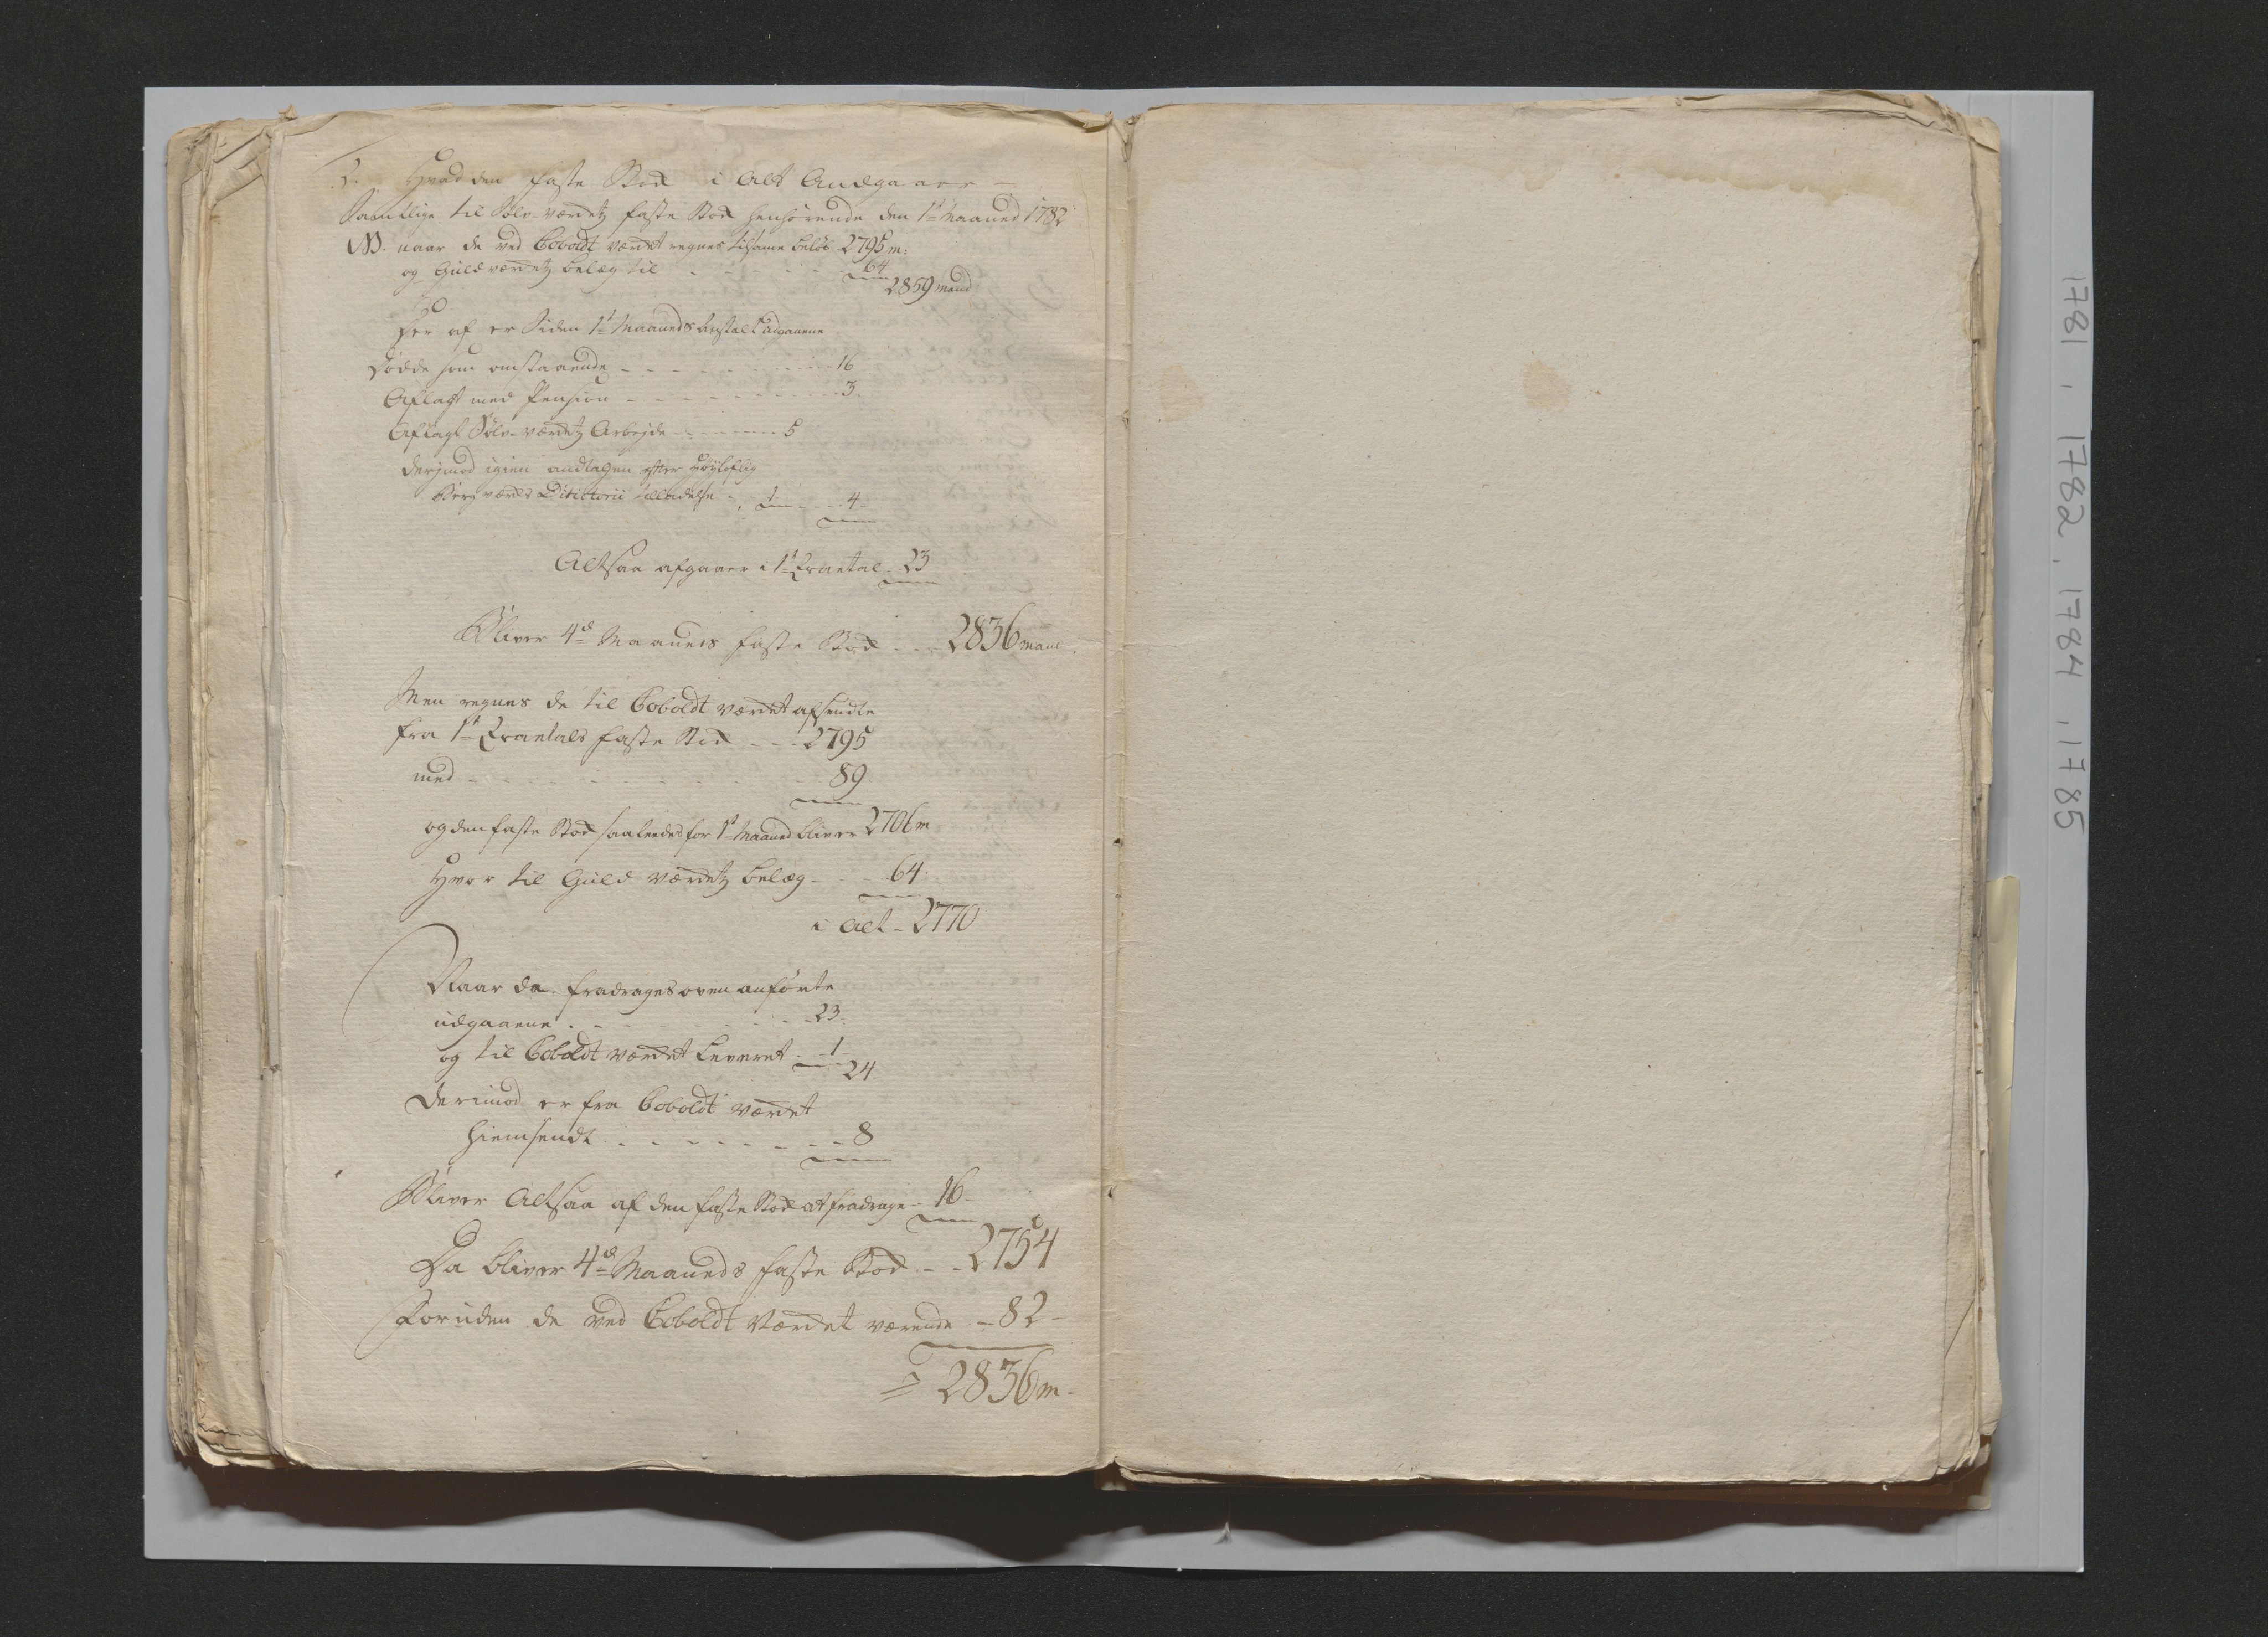 2. Hvad den faste Stok i Alt Andgaaer –
Samtlige til Sølv-værkets faste Stok henhørende den 1ste Maaned 1782
NB. naar de ved Coboldt værket regnes tilsamen beløb 2795 m:
og Guldværkets belæg til - - - 64
2859 mand
Her af er siden 1ste Maaneds Anstalt afgaaene
Døde som omstaaende - - - 16
Aflagt med Pension - - - 3.
Aflagt Sølv-værkets Arbejde - - - 5
derimod igien andtagen efter Høyloflig
Bergværks Directorii tilladelse - 1 - - 4
Altsaa afgaaer i 1ste Qvartal - 23
Bliver 4de Maaneds faste Stok - - - 2836 mand.
Men regnes de til Coboldt værket afsendte
fra 1ste Qvartals faste Stok - - - 2795
med - - - 89
og den faste Stok saaledes for 1ste Maaned bliver 2706 m
Hvor til Guld værkets belæg - - 64.
i Alt - 2770
Naar da fradrages oven anførte
udgaaene - - - 23.
og til Coboldt værket leveret - 1
24
Derimod er fra Coboldt værket
hiemsendt - - - 8
Bliver Altsaa af den faste Stok at fradrage - 16 -
Da bliver 4de Maaneds faste Stok - - 2754
Foruden de ved Coboldt Værket værende - 82 -
= 2836 m -
1781, 1782, 1784, 1785